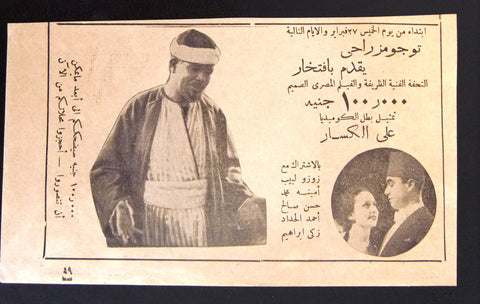 ابتداء من يوم الخميس ٢٧ فبراير والايام التالية
توجو مزراحى
يقدم بافتخار
التحفة الفنية الظريفة والفيلم المصرى الصميم
١٠٠ر٠٠٠ جنيه
تمثيل بطل الكوميديا
على الكسار
بالاشتراك مع
زوزو لبيب
أمينه محمد
حسن صالح
أحمد الحداد
زكى ابراهيم
١٠٠ر٠٠٠ جنيه سيضحككم الى أبعد ما يمكن
أن تتصوروا — أحجزوا محلاتكم من الآن
٤٩